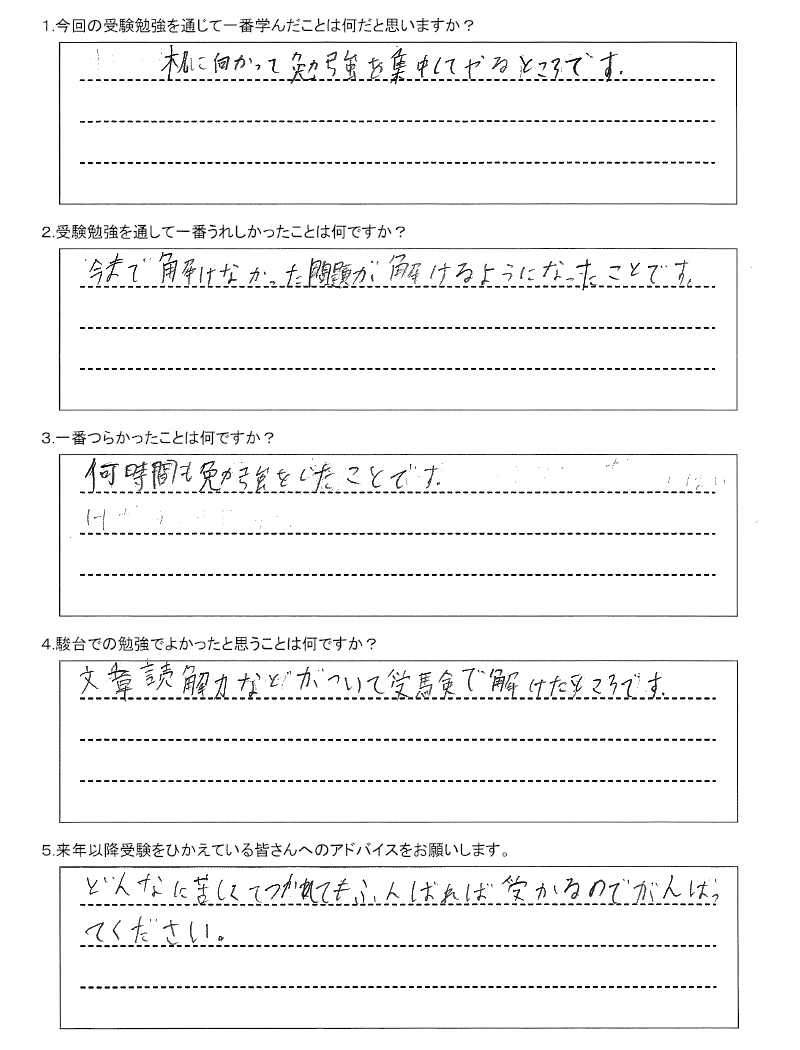 1.今回の受験勉強を通じて一番学んだことは何だと思いますか？
机に向かって勉強を集中してやるところです.
2.受験勉強を通して一番うれしかったことは何ですか？
今まで解けなかった問題が解けるようになったことです.
3.一番つらかったことは何ですか？
何時間も勉強をしたことです.
4.駿台での勉強でよかったと思うことは何ですか？
文章読解力などがついて受験で解けたところです.
5.来年以降受験をひかえている皆さんへのアドバイスをお願いします。
どんなに苦しくてつかれてもふんばれば受かるのでがんばっ
てください。